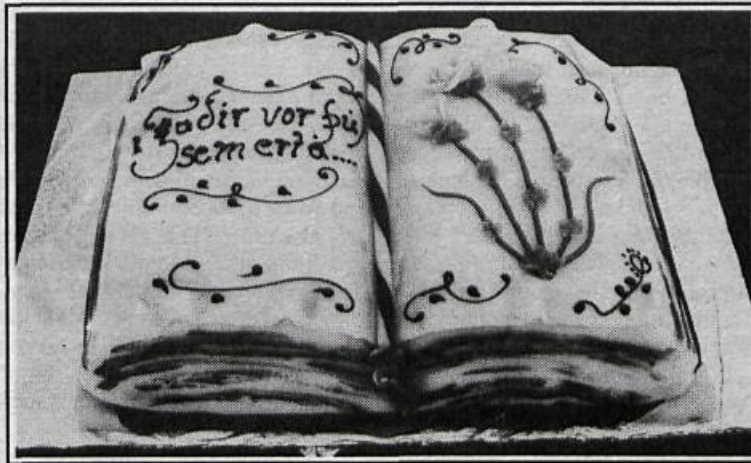 Faðir vor þú
sem ert á....